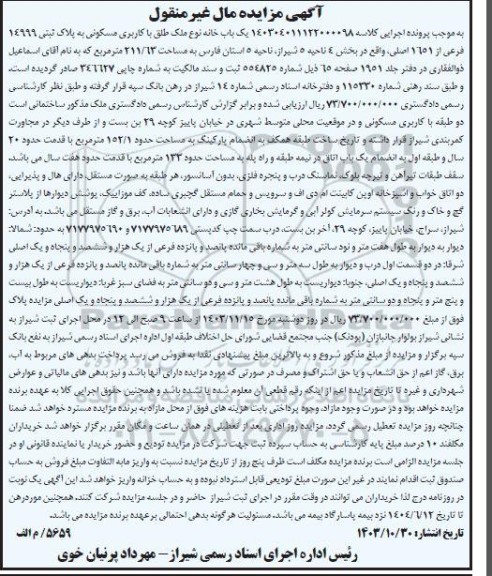 آگهی مزایده مال غیرمنقول
به موجب پرونده اجرایی کلاسه ۱۴۰۳۰۴۰۱۱۱۲۲۰۰۰۰۹۸ یک باب خانه نوع ملک طلق با کاربری مسکونی به پلاک ثبتی ۱۴۹۹۹
فرعی از ۱۶۵۱ اصلی، واقع در بخش ۴ ناحیه ۵ شیراز، ناحیه ۵ استان فارس به مساحت ۲۱۱/۶۳ مترمربع که به نام آقای اسماعیل
ذوالفقاری در دفتر جلد ۱۹۵۱ صفحه ۶۵ ذیل شماره ۵۵۴۸۲۵ ثبت و سند مالکیت به شماره چاپی ۳۴۶۶۲۷ صادر گردیده است.
و طبق سند رهنی شماره ۱۱۵۳۳۰ و دفترخانه اسناد رسمی شماره ۱۴ شیراز در رهن بانک سپه قرار گرفته و طبق نظر کارشناسی
رسمی دادگستری ۷۳/۷۰۰/۰۰۰/۰۰۰ ریال ارزیابی شده و برابر گزارش کارشناس رسمی دادگستری ملک مذکور ساختمانی است
دو طبقه با کاربری مسکونی و در موقعیت محلی متوسط شهری در خیابان پاییز کوچه ۲۹ بن بست و از طرف دیگر در مجاورت
کمربندی شیراز قرار داشته و تاریخ ساخت طبقه همکف به انضمام پارکینگ به مساحت حدود ۱۵۲/۱ مترمربع با قدمت حدود ۲۰
سال و طبقه اول به انضمام یک باب اتاق در نیمه طبقه و راه پله به مساحت حدود ۱۳۳ مترمربع با قدمت حدود هفت سال می باشد.
سقف طبقات تیرآهن و تیرچه بلوک، نماسنگ درب و پنجره فلزی، بدون آسانسور، هر طبقه به صورت مستقل دارای هال و پذیرایی،
دو اتاق خواب و آشپزخانه اوپن کابینت ام دی اف و سرویس و حمام مستقل گچبری ساده، کف موزاییک، پوشش دیوارها از پلاستر
گچ و خاک و رنگ سیستم سرمایش کولر آبی و گرمایش بخاری گازی و دارای انشعابات آب، برق و گاز مستقل می باشد، به آدرس:
شیراز، سراج، خیابان پاییز، کوچه ۲۹، آخر بن بست، درب سمت چپ کدپستی ۷۱۷۷۹۷۵۶۸۹ و ۷۱۷۷۹۷۵۶۹۰ به حدود: شمالا:
دیوار به دیوار به طول هفت متر و نود سانتی متر به شماره باقی مانده پانصد و پانزده فرعی از یک هزار و ششصد و پنجاه و یک اصلی
شرقا: در دو قسمت اول درب و دیوار به طول سه متر و سی و چهار سانتی متر به شماره باقی مانده پانصد و پانزده فرعی از یک هزار و
ششصد و پنجاه و یک اصلی، جنوبا: دیواریست به طول هشت متر و سی و دو سانتی متر به فضای سبز غربا: دیواریست به طول بیست
و پنج متر و پنجاه و دو سانتی متر به شماره باقی مانده پانصد و پانزده فرعی از یک هزار و ششصد و پنجاه و یک اصلی مزایده پلاک
فوق از مبلغ ۷۳/۷۰۰/۰۰۰/۰۰۰ ریال در روز دوشنبه مورخ ۱۴۰۳/۱۱/۱۵ از ساعت ۹ صبح الی ۱۲ در محل اجرای ثبت شیراز به
نشانی شیراز بولوار جانبازان (پودنک) جنب مجتمع قضایی شورای حل اختلاف طبقه اول اداره اجرای اسناد رسمی شیراز به نفع بانک
سپه برگزار و مزایده از مبلغ مذکور شروع و به بالاترین مبلغ پیشنهادی نقدا به فروش می رسد پرداخت بدهی های مربوط به آب،
برق، گاز اعم از حق انشعاب و یا حق اشتراک و مصرف در صورتی که مورد مزایده دارای آنها باشد و نیز بدهی های مالیاتی و عوارض
شهرداری و غیره تا تاریخ مزایده اعم از اینکه رقم قطعی آن معلوم شده یا نشده باشد و همچنین حقوق اجرایی کلا به عهده برنده
مزایده خواهد بود و در صورت وجود مازاد، وجوه پرداختی بابت هزینه های فوق از محل مازاد به برنده مزایده مسترد خواهد شد ضمنا
چنانچه روز مزایده تعطیل رسمی گردد، مزایده روز اداری بعد از تعطیلی در همان ساعت و مکان مقرر برگزار خواهد شد خریداران
مکلفند ۱۰ درصد مبلغ پایه کارشناسی به حساب سپرده ثبت جهت شرکت در مزایده تودیع و حضور خریدار یا نماینده قانونی او در
جلسه مزایده الزامی است برنده مزایده مکلف است ظرف پنج روز از تاریخ مزایده نسبت به واریز مابه التفاوت مبلغ فروش به حساب
صندوق ثبت اقدام نمایند در غیر این صورت مبلغ تودیعی قابل استرداد نبوده و به حساب خزانه واریز خواهد شد این آگهی یک نوبت
در روزنامه درج لذا خریداران می توانند در وقت مقرر در اجرای ثبت شیراز حاضر و در جلسه مزایده شرکت کنند. همچنین موردرهن
تا تاریخ ۱۴۰۴/۶/۱۲ نزد بیمه پاسارگاد بیمه می باشد. مسئولیت هرگونه بدهی احتمالی برعهده برنده مزایده می باشد.
تاریخ انتشار: ۱۴۰۳/۱۰/۳۰
۵۶۵۹/ م الف
رئیس اداره اجرای اسناد رسمی شیراز – مهرداد پرنیان خوی